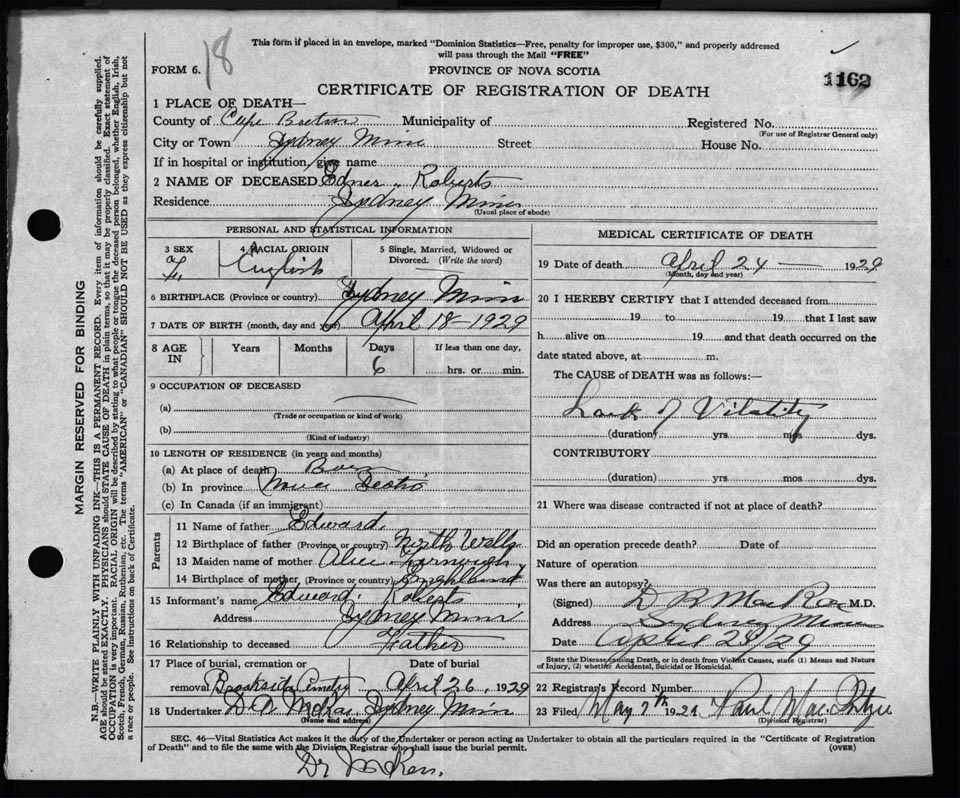 This form if placed in an envelope, marked "Dominion Statistics—Free, penalty for improper use, $300," and properly addressed
will pass through the Mail "FREE"
18
FORM 6.
PROVINCE OF NOVA SCOTIA
1162
CERTIFICATE OF REGISTRATION OF DEATH
1 PLACE OF DEATH—
County of Cape Breton Municipality of Registered No.
(For use of Registrar General only)
City or Town Sydney Mines Street House No.
If in hospital or institution, give name
2 NAME OF DECEASED Roberts
Residence Sydney Mines
(Usual place of abode)
PERSONAL AND STATISTICAL INFORMATION
3 SEX 4 RACIAL ORIGIN 5 Single, Married, Widowed or
Divorced. (Write the word)
F. English
6 BIRTHPLACE (Province or country) Sydney Mines
7 DATE OF BIRTH (month, day and year) April 18-1929
8 AGE IN Years Months Days If less than one day,
6 hrs. or min.
9 OCCUPATION OF DECEASED
(a)
(Trade or occupation or kind of work)
(b)
(Kind of industry)
10 LENGTH OF RESIDENCE (in years and months)
(a) At place of death Born
(b) In province Nova Scotia
(c) In Canada (if an immigrant)
Parents
11 Name of father Edward
12 Birthplace of father (Province or country) North Wells
13 Maiden name of mother Alice
14 Birthplace of mother (Province or country)
15 Informant's name Edward Roberts
Address Sydney Mines
16 Relationship to deceased Father
17 Place of burial, cremation or Date of burial
removal Brookside Cemetry April 26, 1929
18 Undertaker Sydney Mines
(Name and address)
MEDICAL CERTIFICATE OF DEATH
19 Date of death April 24 — 1929
(Month, day and year)
20 I HEREBY CERTIFY that I attended deceased from
19 to 19 that I last saw
h alive on 19 and that death occurred on the
date stated above, at m.
The CAUSE of DEATH was as follows:—
Lack of Vitality
(duration) yrs mos dys.
CONTRIBUTORY
(duration) yrs mos dys.
21 Where was disease contracted if not at place of death?
Did an operation precede death? Date of
Nature of operation
Was there an autopsy?
(Signed) D R MacRae M.D.
Address Sydney Mines
Date April 24/29
State the Disease causing Death, or in death from Violent Causes, state (1) Means and Nature
of Injury, (2) whether Accidental, Suicidal or Homicidal.
22 Registrar's Record Number
23 Filed May 7th 1929 Paul
(Division Registrar)
SEC. 46—Vital Statistics Act makes it the duty of the Undertaker or person acting as Undertaker to obtain all the particulars required in the "Certificate of Registration
of Death" and to file the same with the Division Registrar who shall issue the burial permit. (OVER)
MARGIN RESERVED FOR BINDING
N.B.—WRITE PLAINLY WITH UNFADING INK—THIS IS A PERMANENT RECORD. Every item of information should be carefully supplied.
AGE should be stated EXACTLY. PHYSICIANS should STATE CAUSE OF DEATH in plain terms, so that it may be properly classified. Exact statement of
OCCUPATION is very important. RACIAL ORIGIN will be described by stating to what people or tongue the deceased person belonged, whether English, Irish,
Scotch, French, German, Russian, Ruthenian, etc. The terms "AMERICAN" or "CANADIAN" SHOULD NOT BE USED as they express citizenship but not
a race or people. See instructions on back of Certificate.